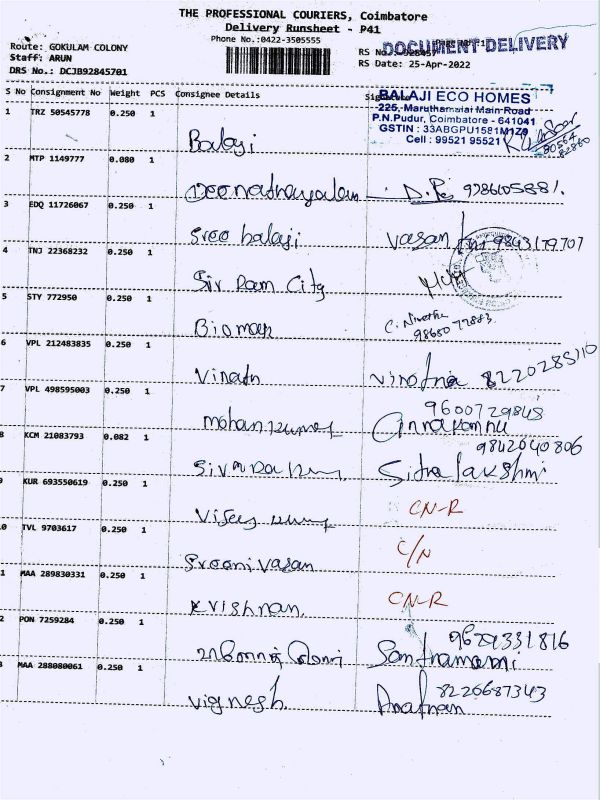 THE PROFESSIONAL COURIERS, Coimbatore
Delivery Runsheet - P41
Phone No.:0422-3505555
DOCUMENT DELIVERY
Route: GOKULAM COLONY
RS No.
Staff: ARUN
RS Date: 25-Apr-2022
DRS No.: DCJB92845701
S No Consignment No Weight PCS Consignee Details
BALAJI ECO HOMES
225, Maruthamalai Main Road
P.N.Pudur, Coimbatore - 641041
GSTIN : 33ABGPU1581M1Z9
Cell : 99521 95521
1 TRZ 50545778 0.250 1
Balaji
2 MTP 1149777 0.080 1
3 EDQ 11726067 0.250 1
Sree balaji Vasan 9843179707
4 TNJ 22368232 0.250 1
Siv Ram City
5 STY 772950 0.250 1
6 VPL 212483835 0.250 1
8220285110
7 VPL 498595003 0.250 1
9600729848
8 KCM 21083793 0.082 1
9842040806
Sitralakshmi
9 KUR 693550619 0.250 1
CN-R
0 TVL 9703617 0.250 1
C/N
Sreenivasan
1 MAA 289830331 0.250 1
CN-R
Krishnan
2 PON 7259284 0.250 1
9629331816
3 MAA 288080061 0.250 1
8220687343
Vignesh